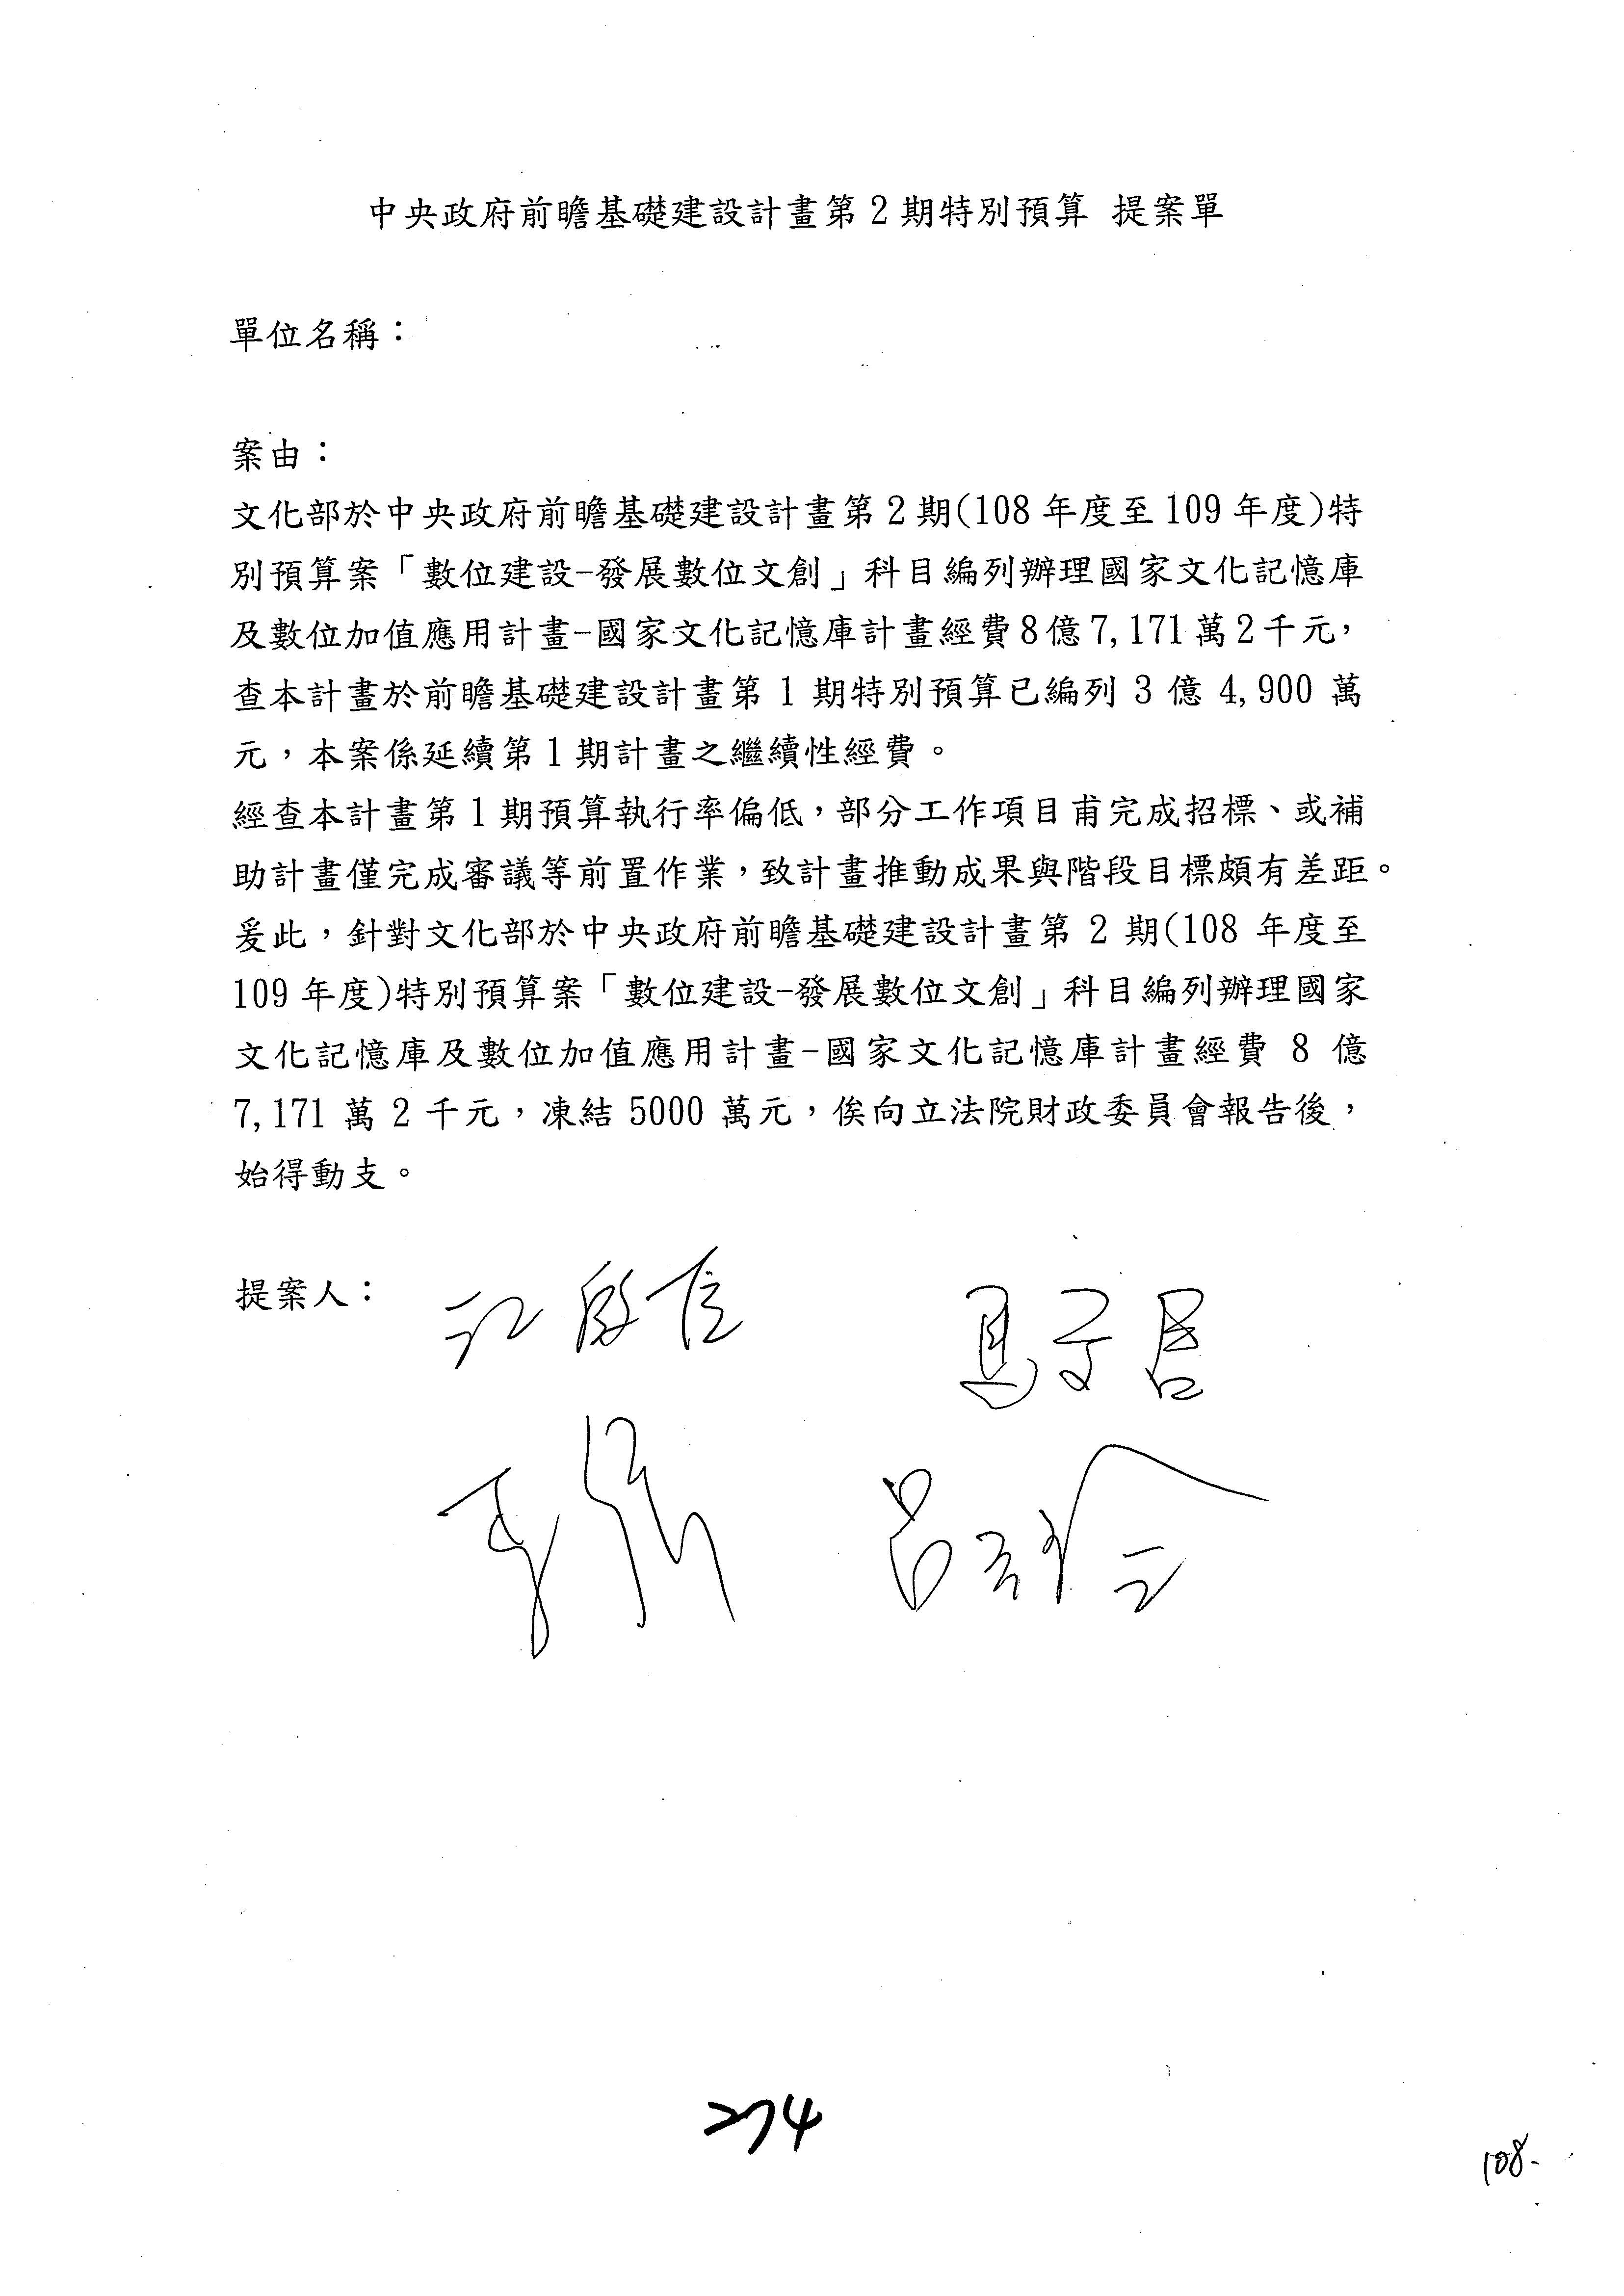 中央政府前瞻基礎建設計畫第2期特別預算 提案單
單位名稱：
案由：
文化部於中央政府前瞻基礎建設計畫第2期(108年度至109年度)特
別預算案「數位建設-發展數位文創」科目編列辦理國家文化記憶庫
及數位加值應用計畫-國家文化記憶庫計畫經費8億7,171萬2千元，
查本計畫於前瞻基礎建設計畫第1期特別預算已編列3億4,900萬
元，本案係延續第1期計畫之繼續性經費。
經查本計畫第1期預算執行率偏低，部分工作項目甫完成招標、或補
助計畫僅完成審議等前置作業，致計畫推動成果與階段目標頗有差距。
爰此，針對文化部於中央政府前瞻基礎建設計畫第2期(108年度至
109年度)特別預算案「數位建設-發展數位文創」科目編列辦理國家
文化記憶庫及數位加值應用計畫-國家文化記憶庫計畫經費8億
7,171萬2千元，凍結5000萬元，俟向立法院財政委員會報告後，
始得動支。
提案人：
江啟臣
274
108-